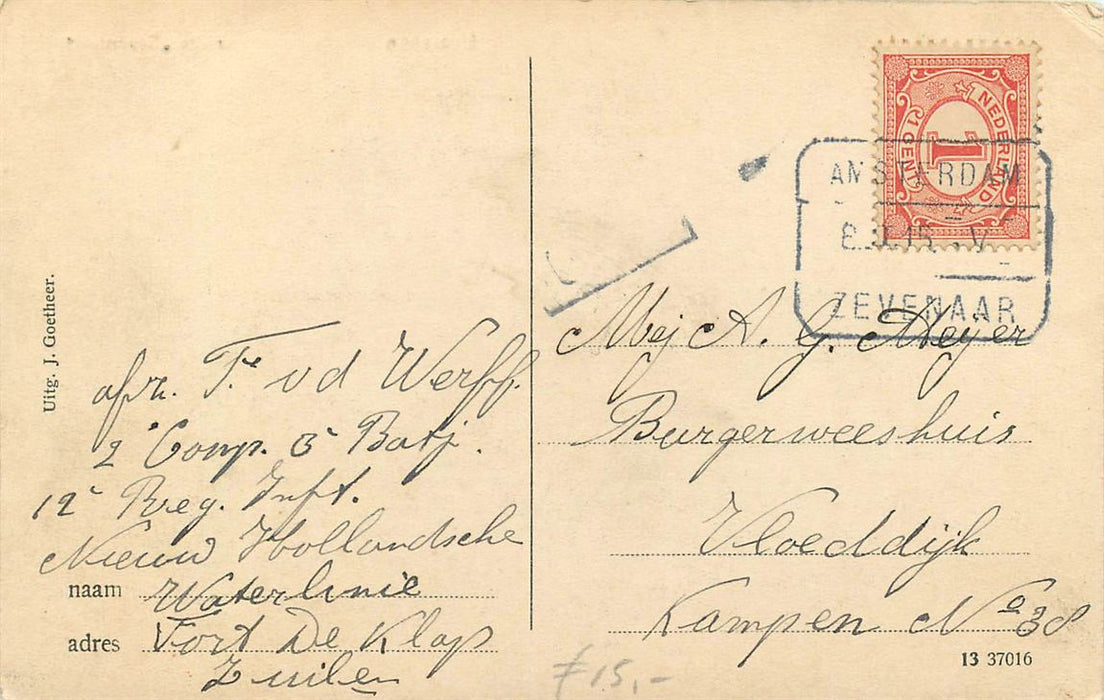 Uitg. J. Goetheer.
afz. Fe vd Werff.
2e Comp. 3e Batj.
12e Reg. Inft.
Nieuw Hollandsche
naam Waterlinie
adres Fort De Klop
Zuilen
NEDERLAND
1
1 CENT
AMSTERDAM
ZEVENAAR
Mej A. G. Meijer
Burgerweeshuis
Vloeddijk
Kampen No 38
13 37016
£15,-